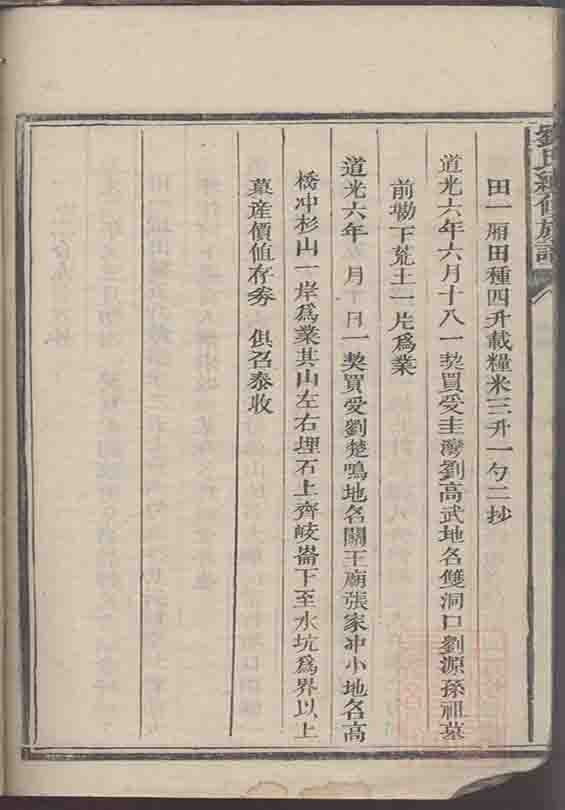 劉氏續修族譜
田一厢田種四升載糧米三升一勺二抄
道光六年六月十八一契買受圭灣劉高武地名雙洞口劉源孫祖墓
前塝下荒土一片爲業
道光六年 月十日一契買受劉楚鳴地名關王廟張家冲小地名高
橋冲杉山一岸爲業其山左右埋石上齊岐崙下至水坑爲界以上
葉産價值存劵 俱召泰收